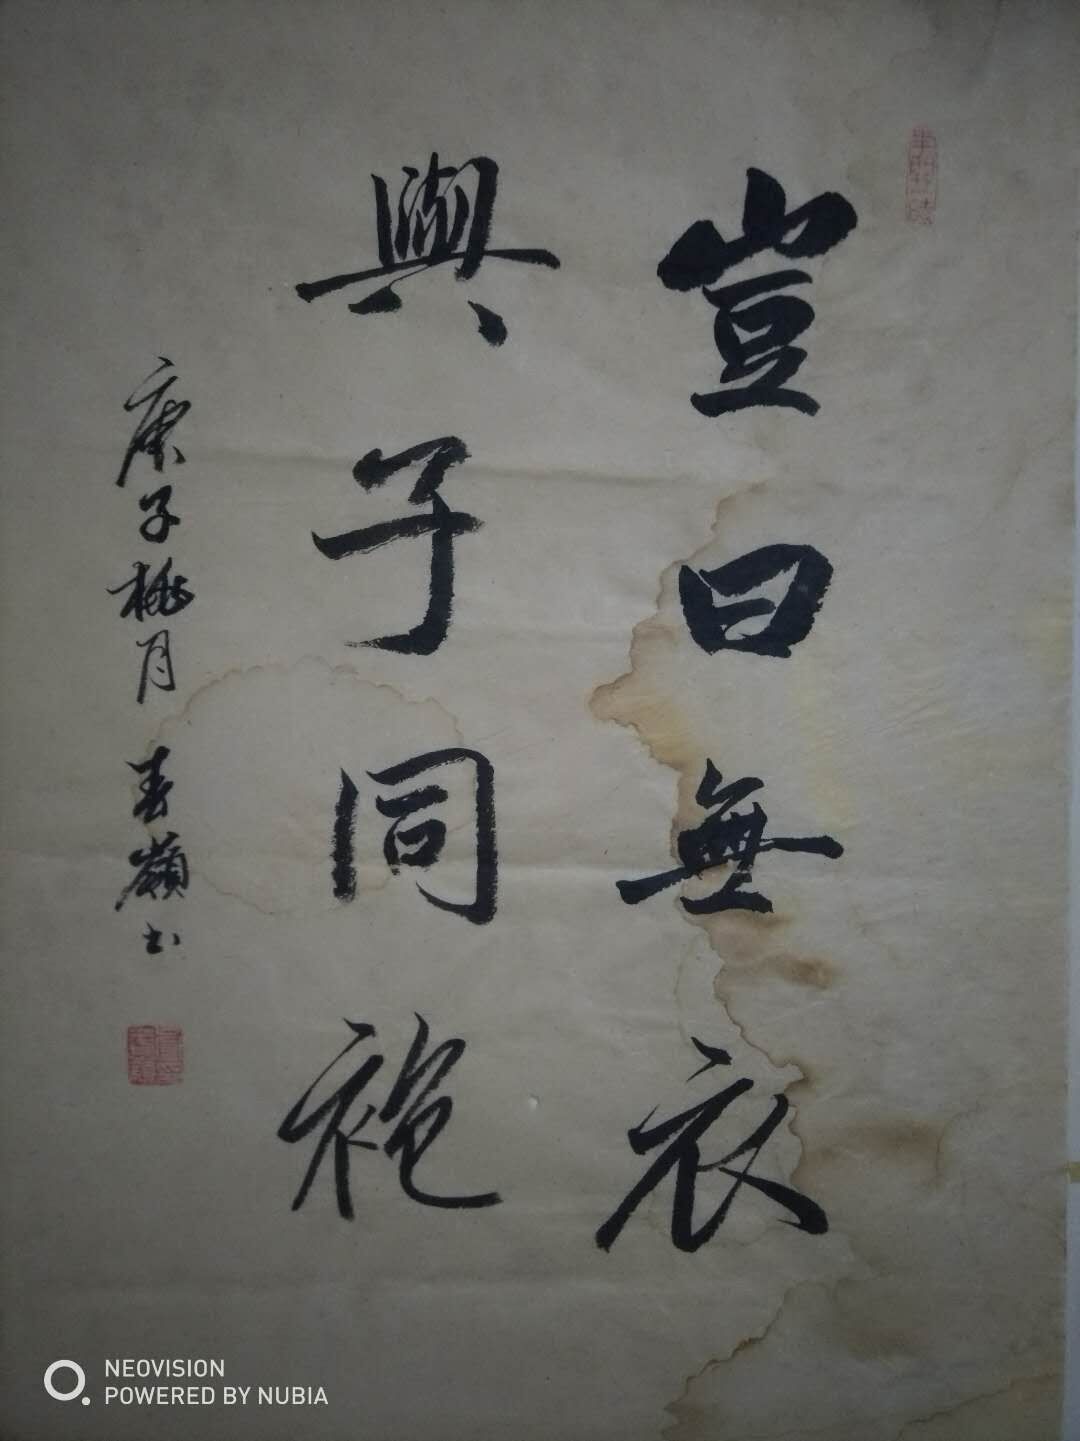 豈曰無衣
與子同袍
庚子桃月 春嶺書
NEOVISION
POWERED BY NUBIA